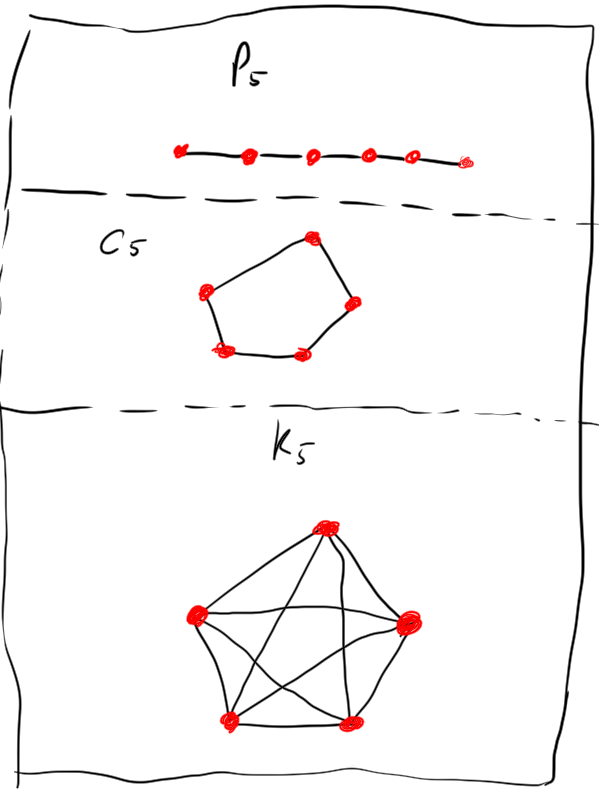 P5
C5
K5